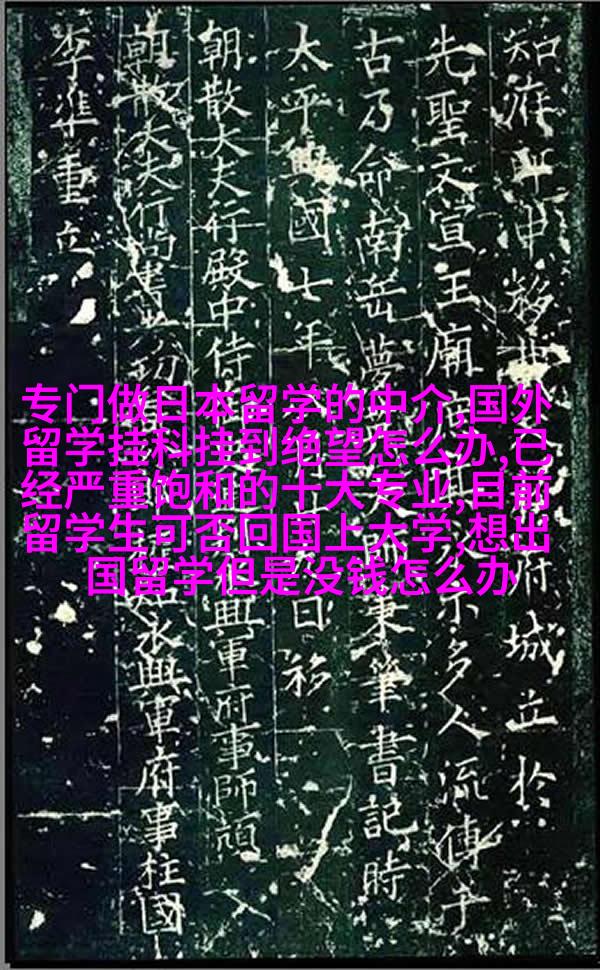 知府郎中移此府城立於
先聖文宣王廟庭多人流傳于
古乃命南岳夢英大師秉筆書記時
太平興國七年日移
朝散大夫行殿中侍興軍府事師頏
朝散大夫行尚書知永興軍府事柱國
李準重立
专门做日本留学的中介,国外
留学挂科挂到绝望怎么办,已
经严重饱和的十大专业,目前
留学生可否回国上大学,想出
国留学但是没钱怎么办